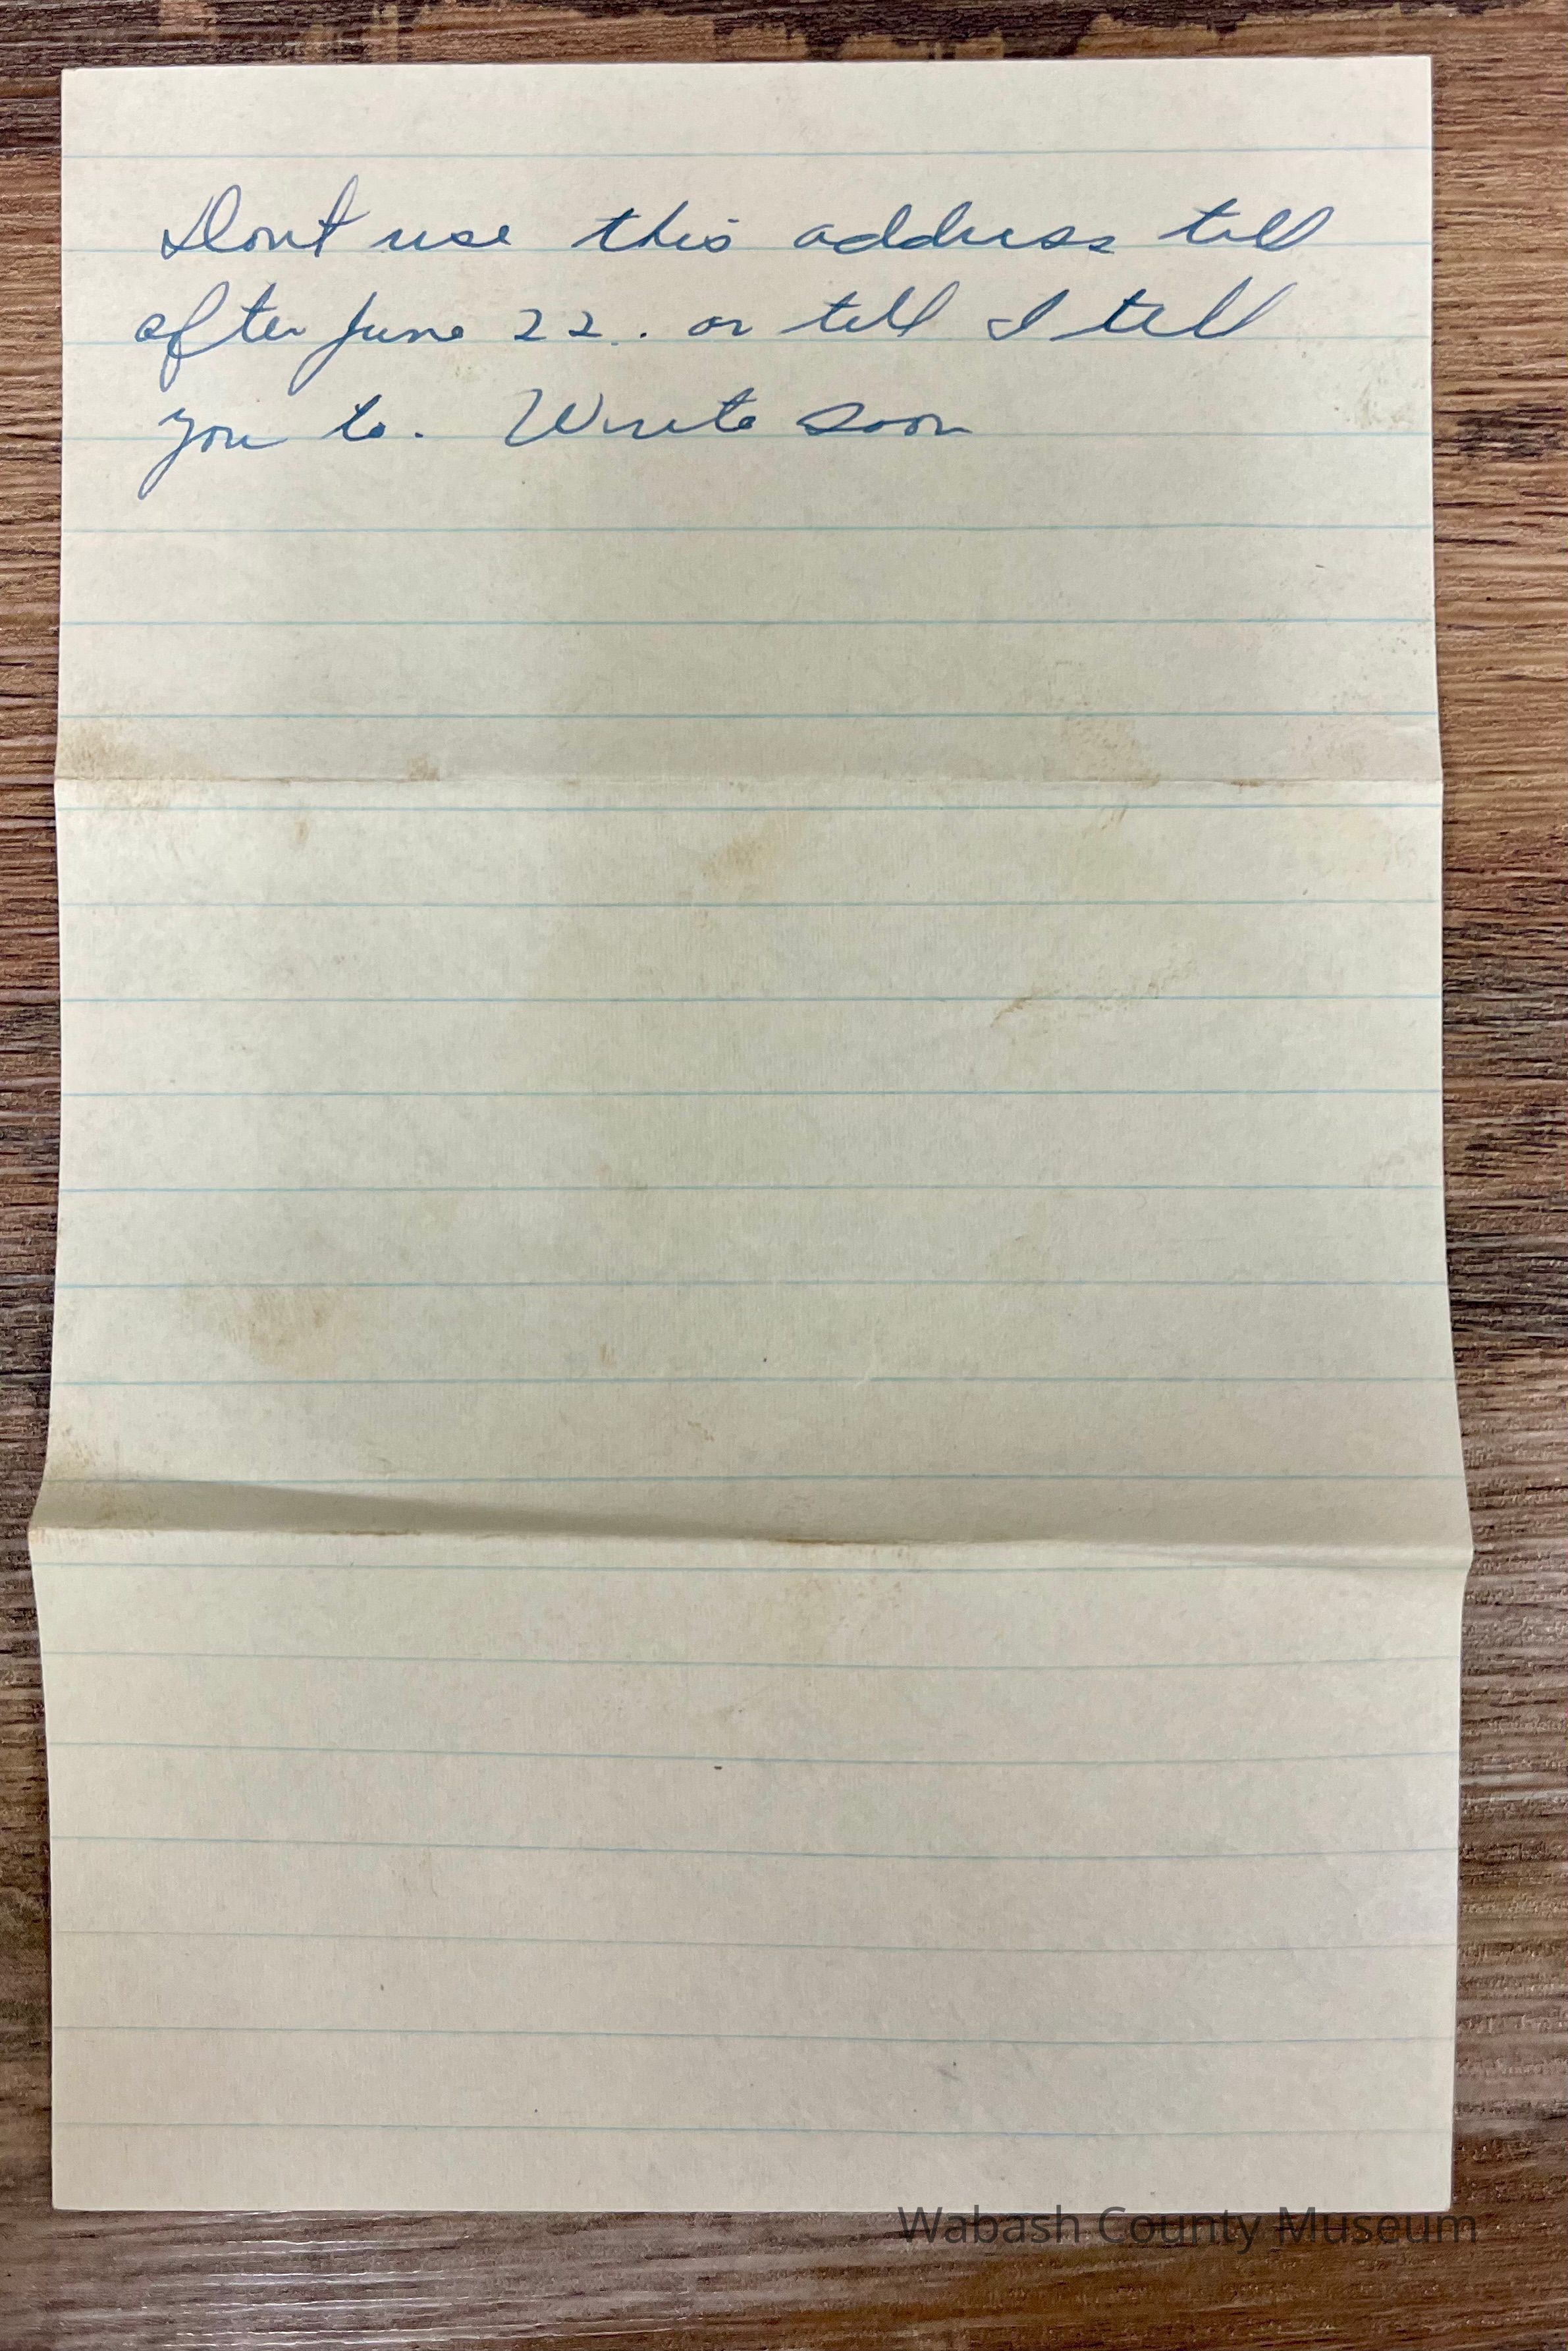 Dont use this address till
after June 22. or till I tell
you to. Write soon
Wabash County Museum